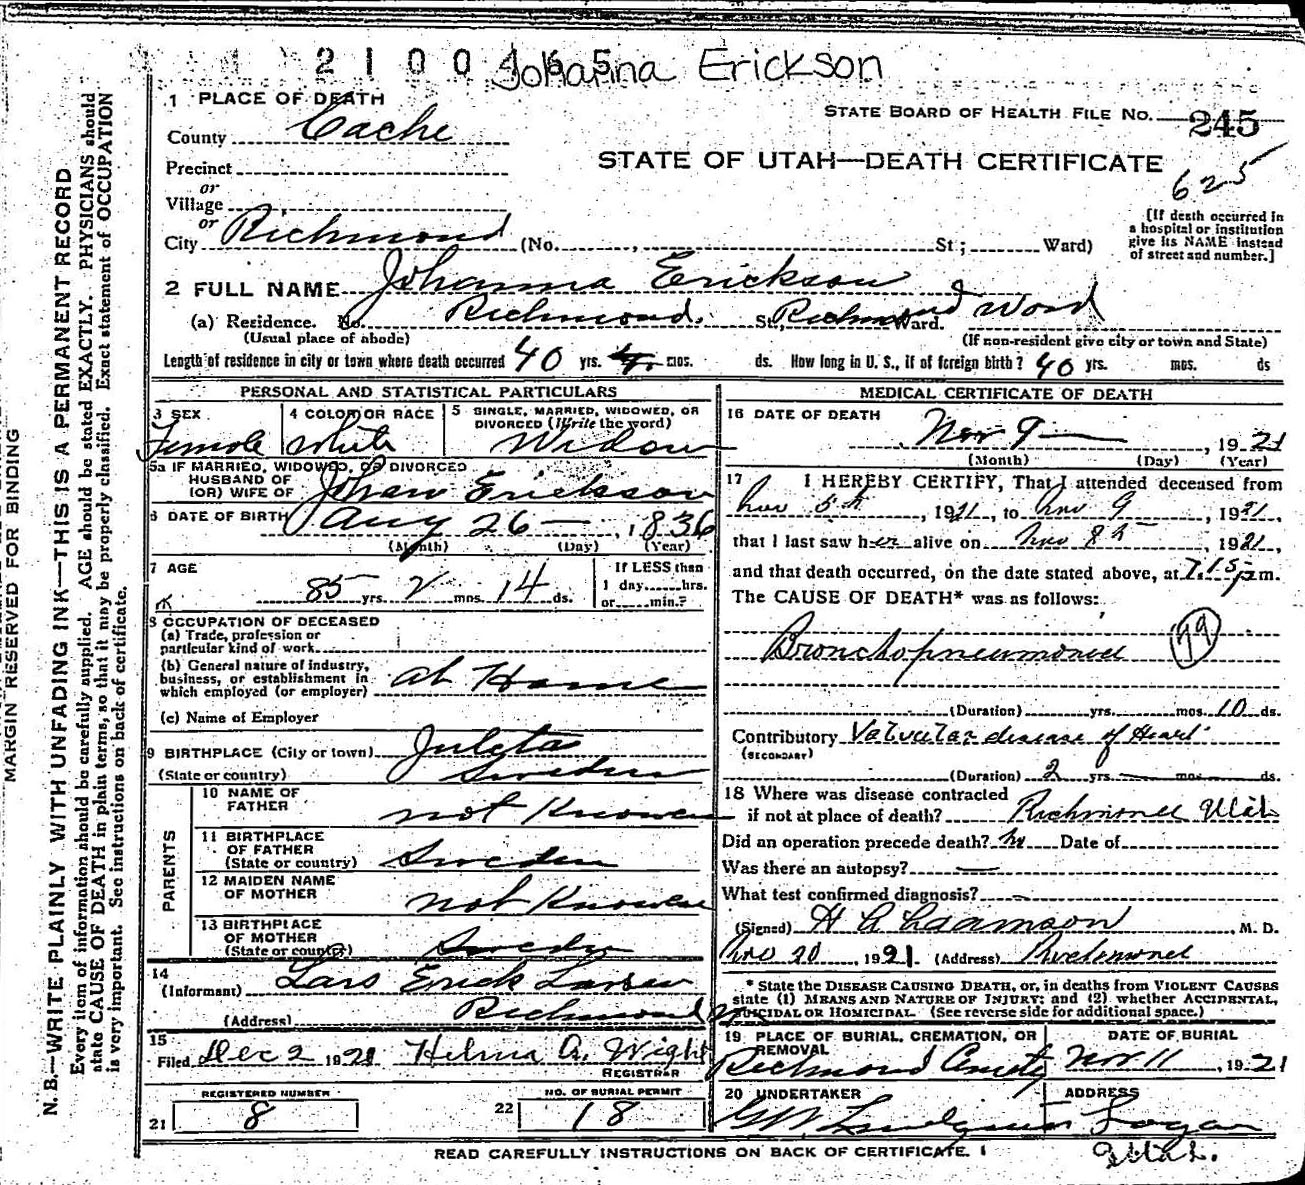 2 1 0 0 4 6 5
Johanna Erickson
1 PLACE OF DEATH
STATE BOARD OF HEALTH FILE No. 245
County Cache
STATE OF UTAH—DEATH CERTIFICATE
625
Precinct
or
Village
or
City Richmond (No. , St; Ward)
[If death occurred in
a hospital or institution
give its NAME instead
of street and number.]
2 FULL NAME Johanna Erickson
(a) Residence. No. Richmond. St, Richmond Ward. Ward
(Usual place of abode) (If non-resident give city or town and State)
Length of residence in city or town where death occurred 40 yrs. mos. ds. How long in U. S., if of foreign birth? 40 yrs. mos. ds
PERSONAL AND STATISTICAL PARTICULARS
3 SEX Female
4 COLOR OR RACE White
5 SINGLE, MARRIED, WIDOWED, OR
DIVORCED (Write the word)
Widow
5a IF MARRIED, WIDOWED, OR DIVORCED
HUSBAND OF
(OR) WIFE OF Johan Erickson
6 DATE OF BIRTH Aug 26 — , 1836
(Month) (Day) (Year)
7 AGE
85 yrs. 2 mos. 14 ds.
If LESS than
1 day hrs.
or min.?
8 OCCUPATION OF DECEASED
(a) Trade, profession or
particular kind of work
(b) General nature of industry,
business, or establishment in
which employed (or employer) at Home
(c) Name of Employer
9 BIRTHPLACE (City or town) Juleta
(State or country) Sweden
PARENTS
10 NAME OF
FATHER not Known
11 BIRTHPLACE
OF FATHER
(State or country) Sweden
12 MAIDEN NAME
OF MOTHER not Known
13 BIRTHPLACE
OF MOTHER
(State or country) Sweden
14
(Informant) Lars Erick Larsen
(Address) Richmond
15
Filed Dec 2 1921 Helma A. Wight
REGISTRAR
REGISTERED NUMBER
21 8
NO. OF BURIAL PERMIT
22 18
MEDICAL CERTIFICATE OF DEATH
16 DATE OF DEATH
Nov 9 — , 1921
(Month) (Day) (Year)
17 I HEREBY CERTIFY, That I attended deceased from
Nov 5th , 1921, to Nov 9 , 1921,
that I last saw her alive on Nov 8th 1921,
and that death occurred, on the date stated above, at 7.15 p.m.
The CAUSE OF DEATH* was as follows:
Bronchopneumonia
(Duration) yrs. mos. 10 ds.
Contributory Valvular disease of Heart
(SECONDARY)
(Duration) 2 yrs. — mos. ds.
18 Where was disease contracted
if not at place of death? Richmond Utah
Did an operation precede death? No Date of
Was there an autopsy? —
What test confirmed diagnosis? —
(Signed) Adamson M. D.
Nov 20 , 1921 (Address) Richmond
* State the DISEASE CAUSING DEATH, or, in deaths from VIOLENT CAUSES
state (1) MEANS AND NATURE OF INJURY; and (2) whether ACCIDENTAL,
SUICIDAL OR HOMICIDAL. (See reverse side for additional space.)
19 PLACE OF BURIAL, CREMATION, OR
REMOVAL
Richmond Cemetery
DATE OF BURIAL
Nov. 11 , 1921
20 UNDERTAKER
Lundquist
ADDRESS
Logan
Utah.
READ CAREFULLY INSTRUCTIONS ON BACK OF CERTIFICATE.
MARGIN RESERVED FOR BINDING
N. B.—WRITE PLAINLY WITH UNFADING INK—THIS IS A PERMANENT RECORD
Every item of information should be carefully supplied. AGE should be stated EXACTLY. PHYSICIANS should
state CAUSE OF DEATH in plain terms, so that it may be properly classified. Exact statement of OCCUPATION
is very important. See instructions on back of certificate.